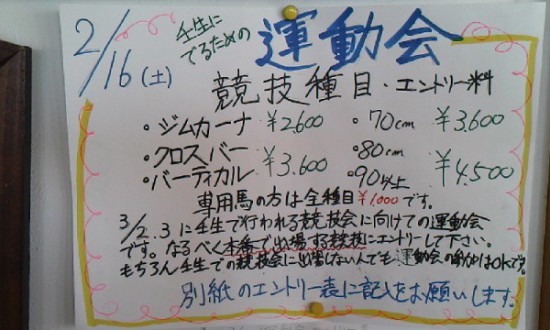 2/16(土)
壬生にでるための
運動会
競技種目・エントリー料
・ジムカーナ ¥2.600
・クロスバー
・バーティカル ¥3.600
・70cm ¥3.600
・80cm
・90以上 ¥4,500
専用馬の方は全種目¥1,000です。
3/2.3に壬生で行われる競技会に向けての運動会
です。なるべく本番で出場する競技にエントリーして下さい。
もちろん壬生での競技会に出場しない人でも運動会の参加はOKです。
別紙のエントリー表に記入をお願いします。